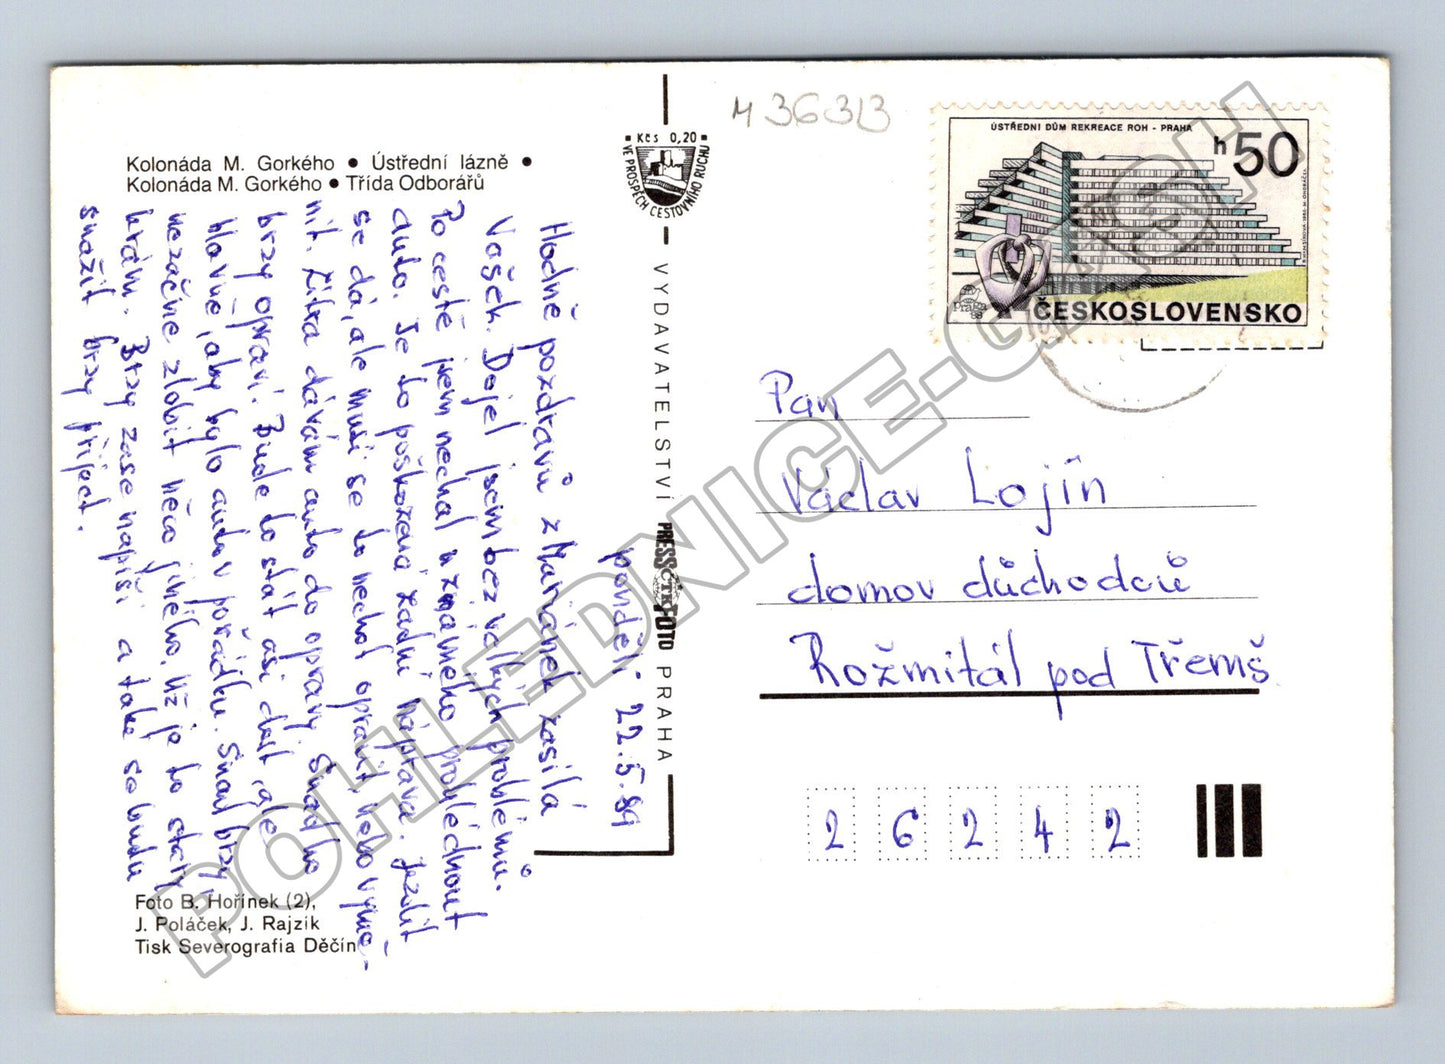 Kolonáda M. Gorkého • Ústřední lázně •
Kolonáda M. Gorkého • Třída Odborářů
pondělí 22.5.89
Hodně pozdravů z Mariánek zasílá
Vašek. Dojel jsem bez velkých problémů.
Po cestě jsem nechal u známého prohlédnout
auto. Je to poškozená zadní náprava. Jezdit
se dá, ale musí se to nechat opravit, nebo vymě-
nit. Zítra dávám auto do opravy. Snad ho
brzy opraví. Bude to stát asi dost, ale
hlavně, aby bylo auto v pořádku. Snad brzy
nezačne zlobit něco jiného, už je to starý
krám. Brzy zase napíši a také se budu
snažit brzy přiject.
Foto B. Hořínek (2),
J. Poláček, J. Rajzík
Tisk Severografia Děčín
Kčs 0,20
VE PROSPĚCH CESTOVNÍHO RUCHU
VYDAVATELSTVÍ PRESSFOTO PRAHA
ČTK
M 363B
ÚSTŘEDNÍ DŮM REKREACE ROH - PRAHA
h50
Praga 88
ČESKOSLOVENSKO
Pan
Václav Lojín
domov důchodců
Rožmitál pod Třemš.
26242
POHLEDNICE-CASH